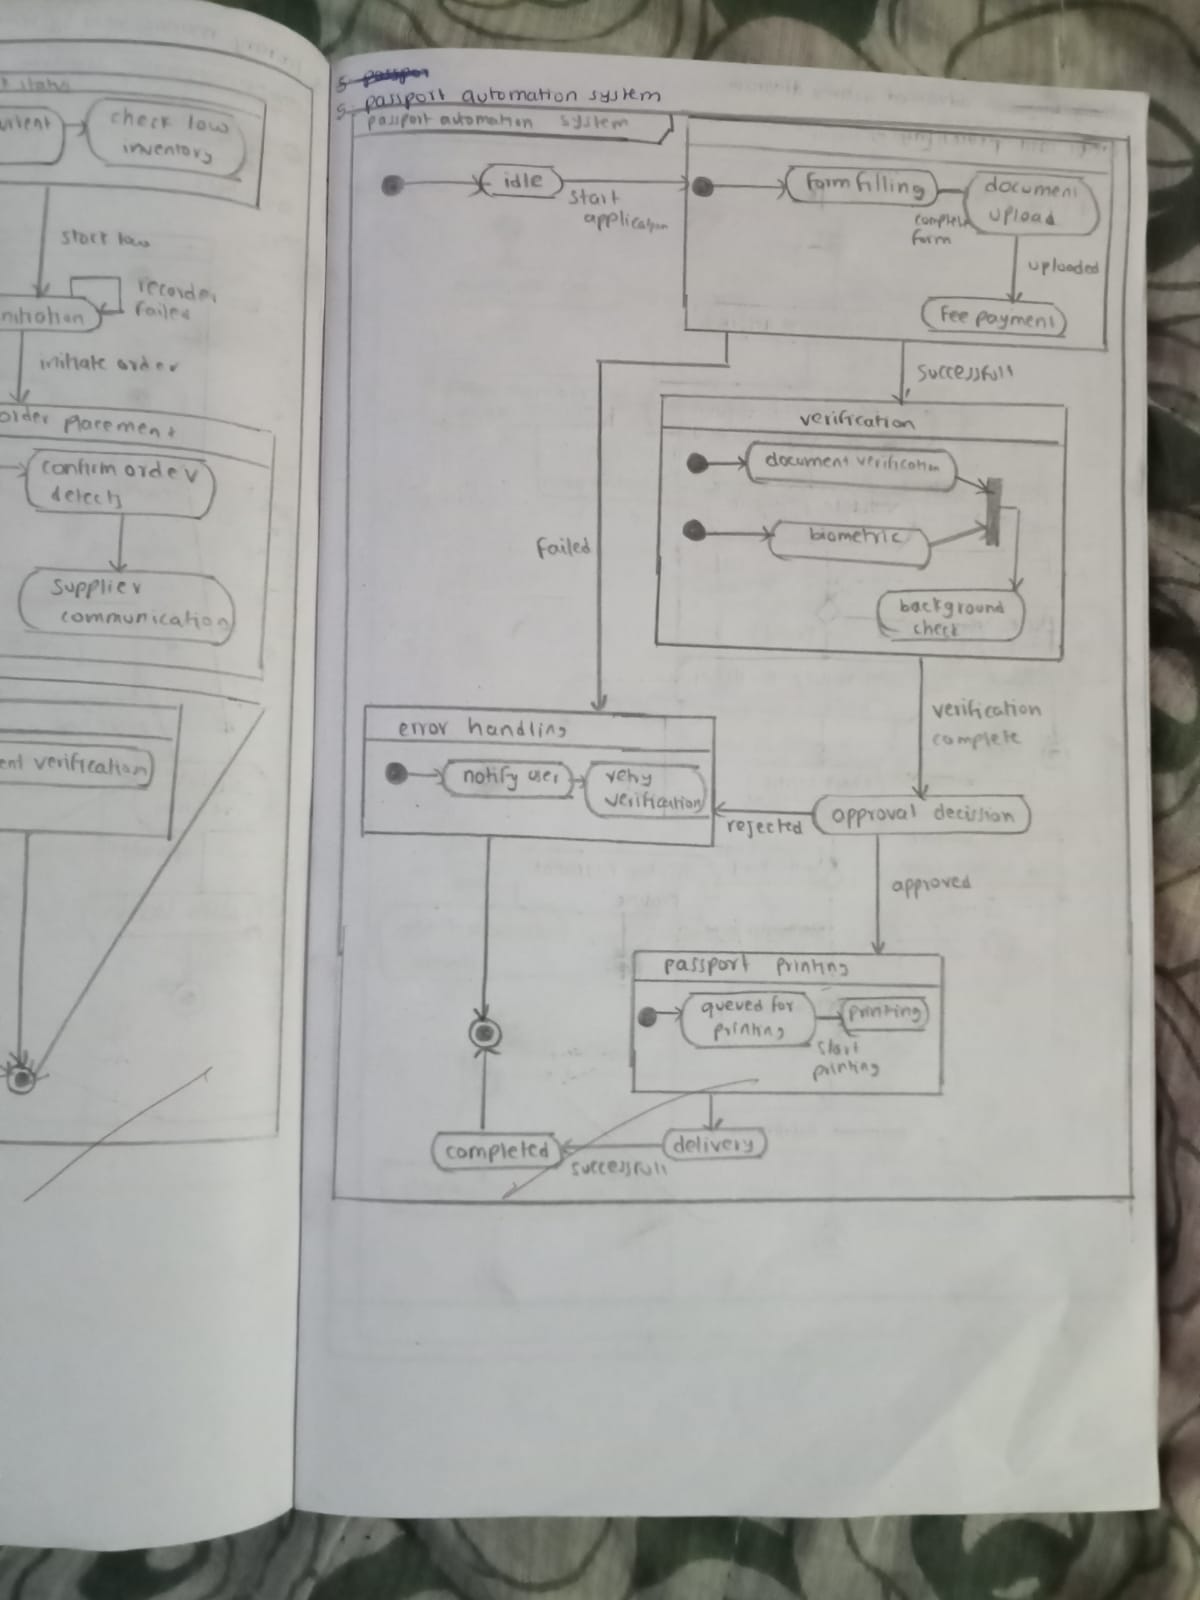 check low
inventory
start low
recorder
failed
initiate order
order placement
confirm order
detects
supplier
communication
ent verification
5. passport automation system
passport automation system
idle
start
application
form filling
complete
form
document
upload
uploaded
Fee payment
successfull
verification
document verification
biometric
background
check
Failed
verification
complete
error handling
notify user
verification
rejected
approval decision
approved
passport printing
queued for
printing
printing
start
printing
delivery
successfull
completed